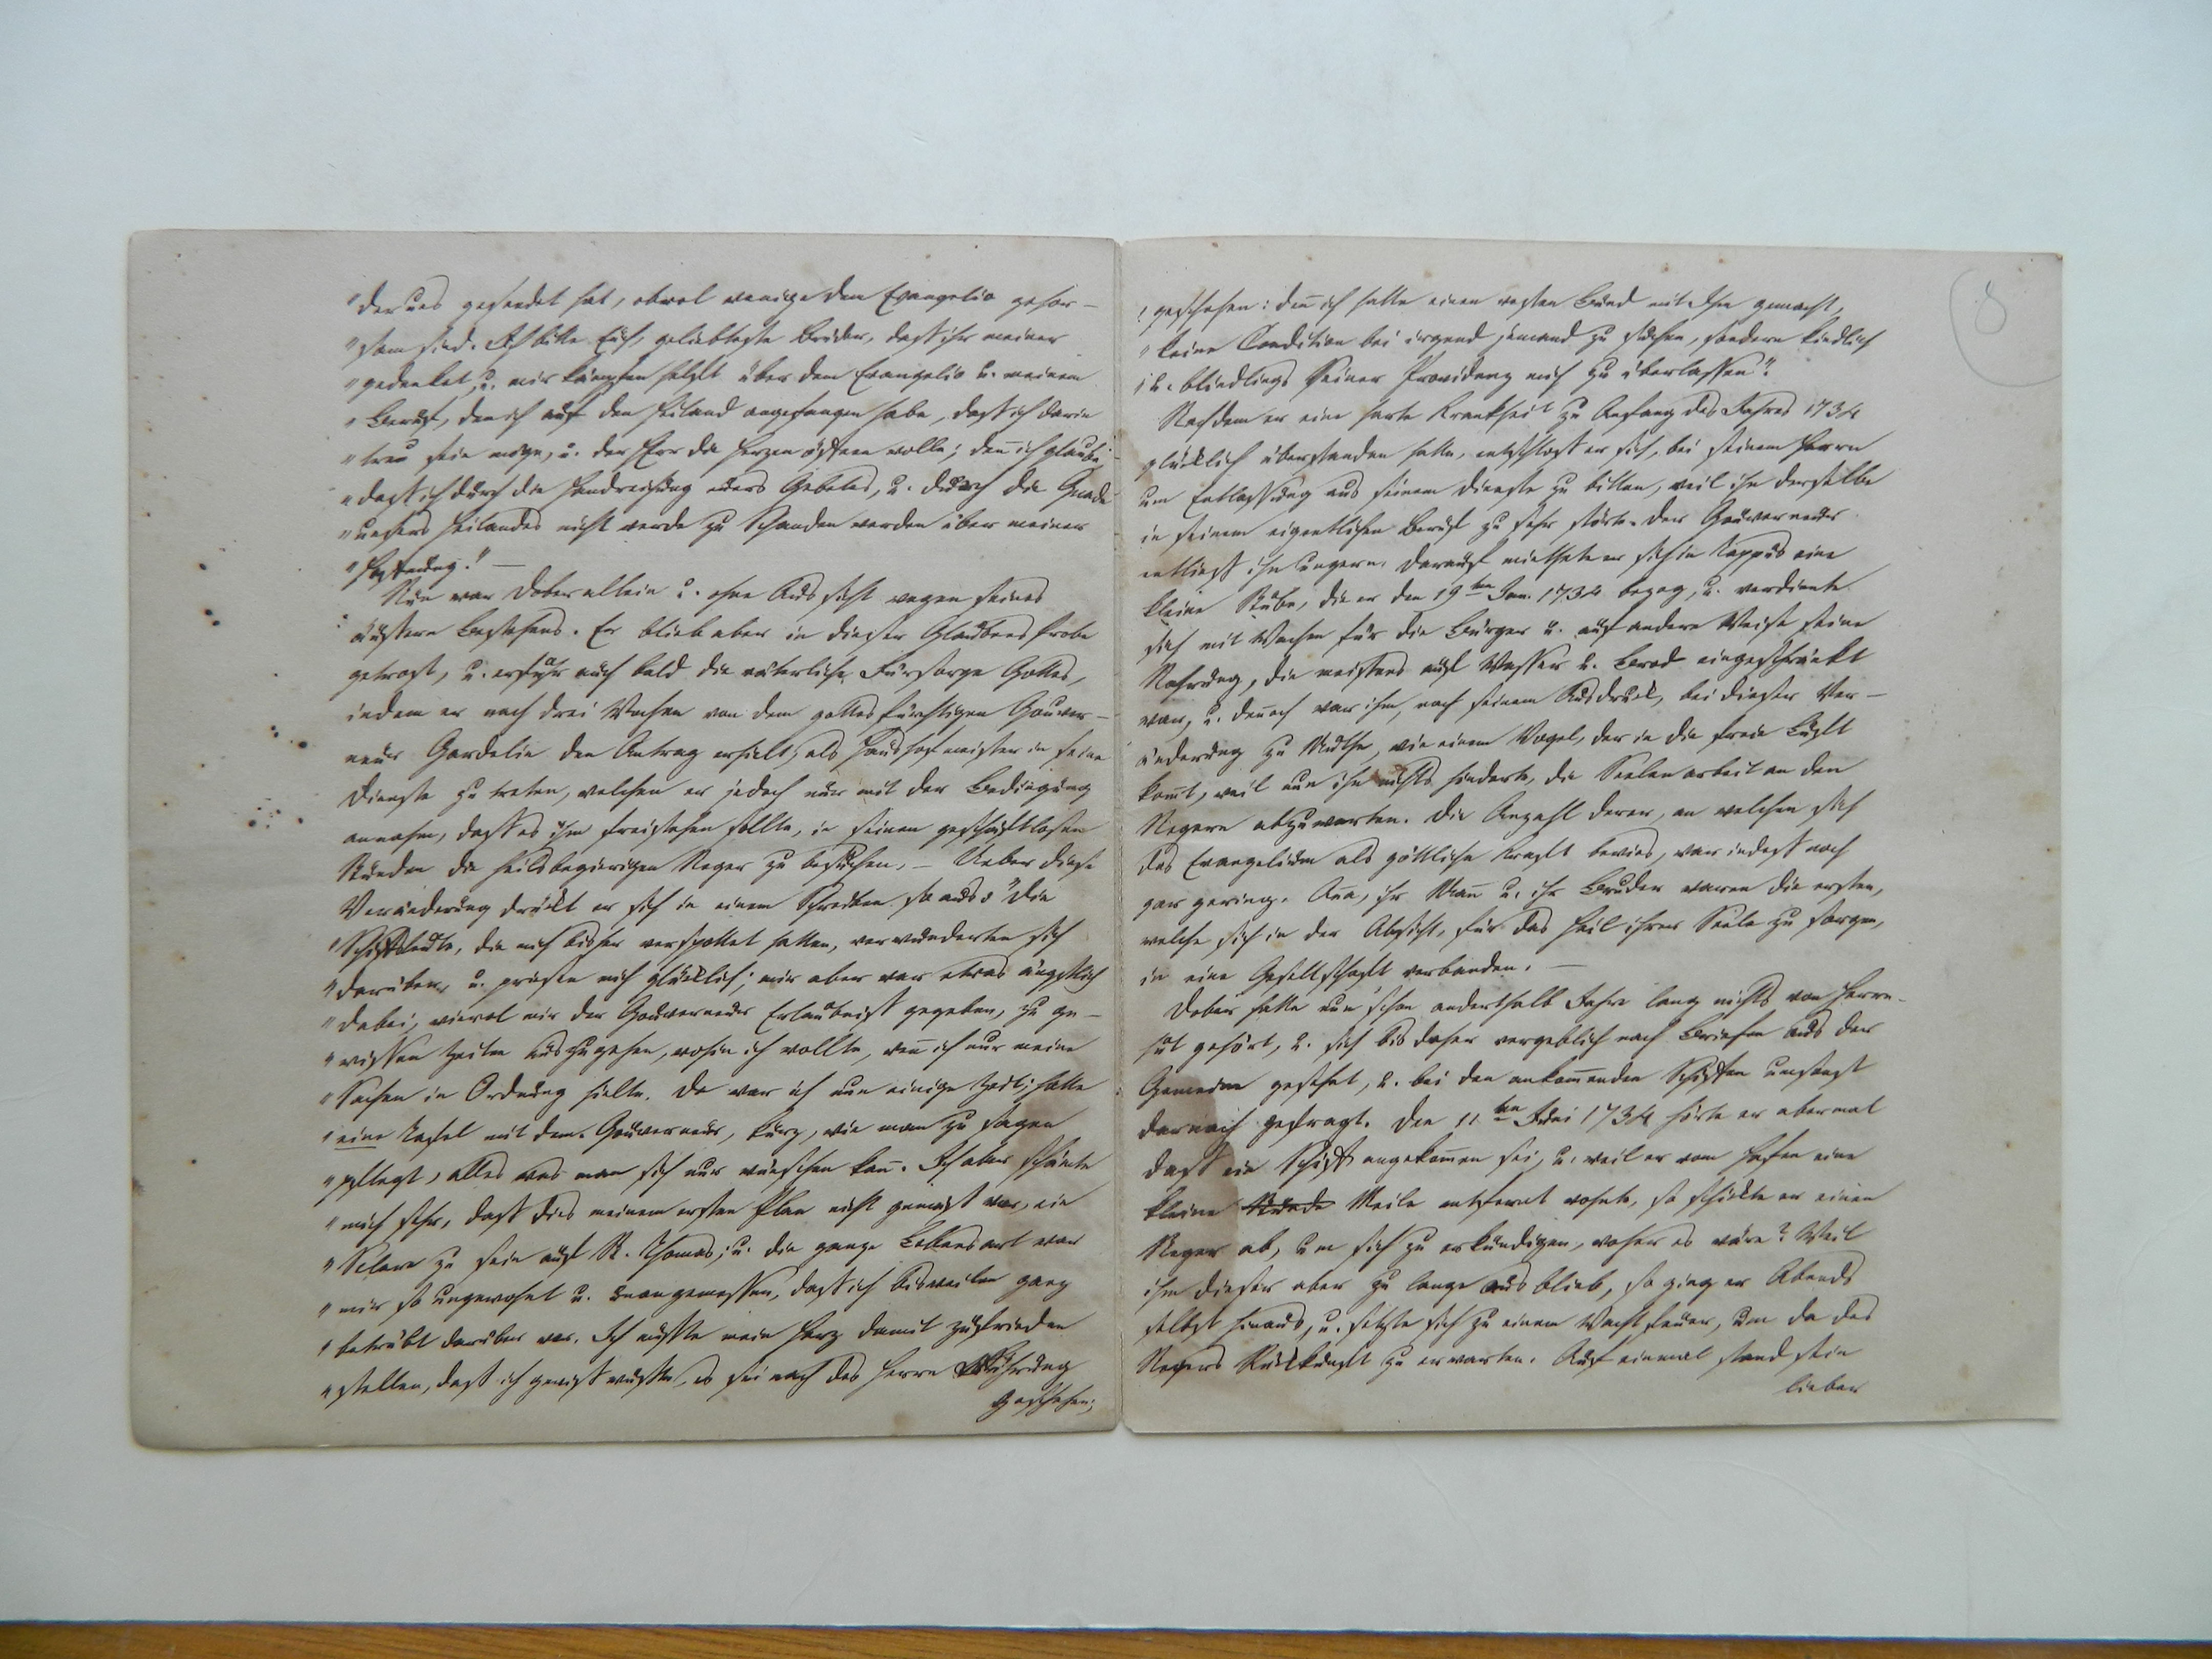 "der uns gesendet hat, obwol wenige dem Evangelio gehor-
"sam sind. Ich bitte Euch, geliebteste Brüder, dass ihr meiner
"gedenket, u. mir kämpfen helft über dem Evangelio u. meinem
"Beruf, den ich auf den Heiland angefangen habe, dass ich darin
"treu sein möge, u. der Herr die Herzen öffnen wolle; deñ ich glaube,
"dass ich durch die Handreichung euers Gebetes, u. durch die Gnade
"unsers Heilandes nicht werde zu Schanden werden über meiner
"Hoffnung." —
Nun war Dober allein u. ohne Aussicht wegen seines
äussern Bestehens. Er blieb aber in dieser Glaubensprobe
getrost, u. erfuhr auch bald die väterliche Fürsorge Gottes,
indem er nach drei Wochen von dem gottesfürchtigen Gouver-
neur Gardelin den Antrag erhielt, als Haushofmeister in seine
Dienste zu treten, welchen er jedoch nur mit der Bedingung
annahm, dass es ihm freistehen sollte, in seinen geschäftlosen
Stunden die heilsbegierigen Neger zu besuchen. — Ueber diese
Veränderung drückt er sich in einem Schreiben so aus: "Die
"Schiffsleute, die mich bisher verspottet hatten, verwunderten sich
"darüber, u. priesen mich glücklich; mir aber war etwas ängstlich
"dabei, wiewol mir der Gouverneur Erlaubniss gegeben, zu ge-
"wissen Zeiten auszugehen, wohin ich wollte, weñ ich nur meine
"Sachen in Ordnung hielte. Da war ich nun einige Zeit; hatte
"eine Tafel mit dem Gouverneur, kurz, wie man zu sagen
"pflegt, alles was man sich nur wünschen kañ. Ich aber schämte
"mich sehr, dass dies meinem ersten Plan nicht gemäss war, ein
"Sclave zu sein auf St. Thomas; u. die ganze Lebensart war
"mir so ungewohnt u. unangemessen, dass ich bisweilen ganz
"betrübt darüber war. Ich musste mein Herz damit zufrieden
"stellen, dass ich gewiss wusste, es sei nach des Herrn Führung
geschehen;
"geschehen: deñ ich hatte einen vesten Bund mit Ihm gemacht,
"keine Condition bei irgend jemand zu suchen, sondern kindlich
"u. blindlings Seiner Providenz mich zu überlassen".
Nachdem er eine harte Krankheit zu Anfang des Jahres 1734
glücklich überstanden hatte, entschloss er sich, bei seinem Herrn
um Entlassung aus seinem Dienste zu bitten, weil ihn derselbe
in seinem eigentlichen Beruf zu sehr störte. Der Gouverneur
entliess ihn ungern. Darauf miethete er sich in Tappus eine
kleine Stube, die er den 19ten Jan. 1734 bezog, u. verdiente
sich mit Wachen für die Bürger u. auf andere Weise seine
Nahrung, die meistens auf Wasser u. Brod eingeschränkt
war, u. deñoch war ihm, nach seinem Ausdruck, bei dieser Ver-
änderung zu Muthe, wie einem Vogel, der in die freie Luft
kom̃t, weil nun ihn nichts hinderte, die Seelenarbeit an den
Negern abzuwarten. Die Anzahl derer, an welchen sich
das Evangelium als göttliche Kraft bewies, war indess noch
gar gering. Aña, ihr Mañ u. ihr Bruder waren die ersten,
welche sich in der Absicht, für das Heil ihrer Seele zu sorgen,
in eine Gesellschaft verbanden. —
Dober hatte nun schon anderthalb Jahre lang nichts von Herrn-
hut gehört, u. sich bis daher vergeblich nach Briefen aus der
Gemeine gesehnt, u. bei den ankom̃enden Schiffen umsonst
darnach gefragt. Den 11ten Juni 1734 hörte er abermal
dass ein Schiff angekom̃en sei, u. weil er vom Hafen eine
kleine Stunde Meile entfernt wohnte, so schickte er einen
Neger ab, um sich zu erkündigen, woher es wäre? Weil
ihm dieser aber zu lange ausblieb, so ging er Abends
selbst hinaus, u. setzte sich zu einem Wachtfeuer, um da des
Negers Rückkunft zu erwarten. Auf einmal stand sein
lieber
8